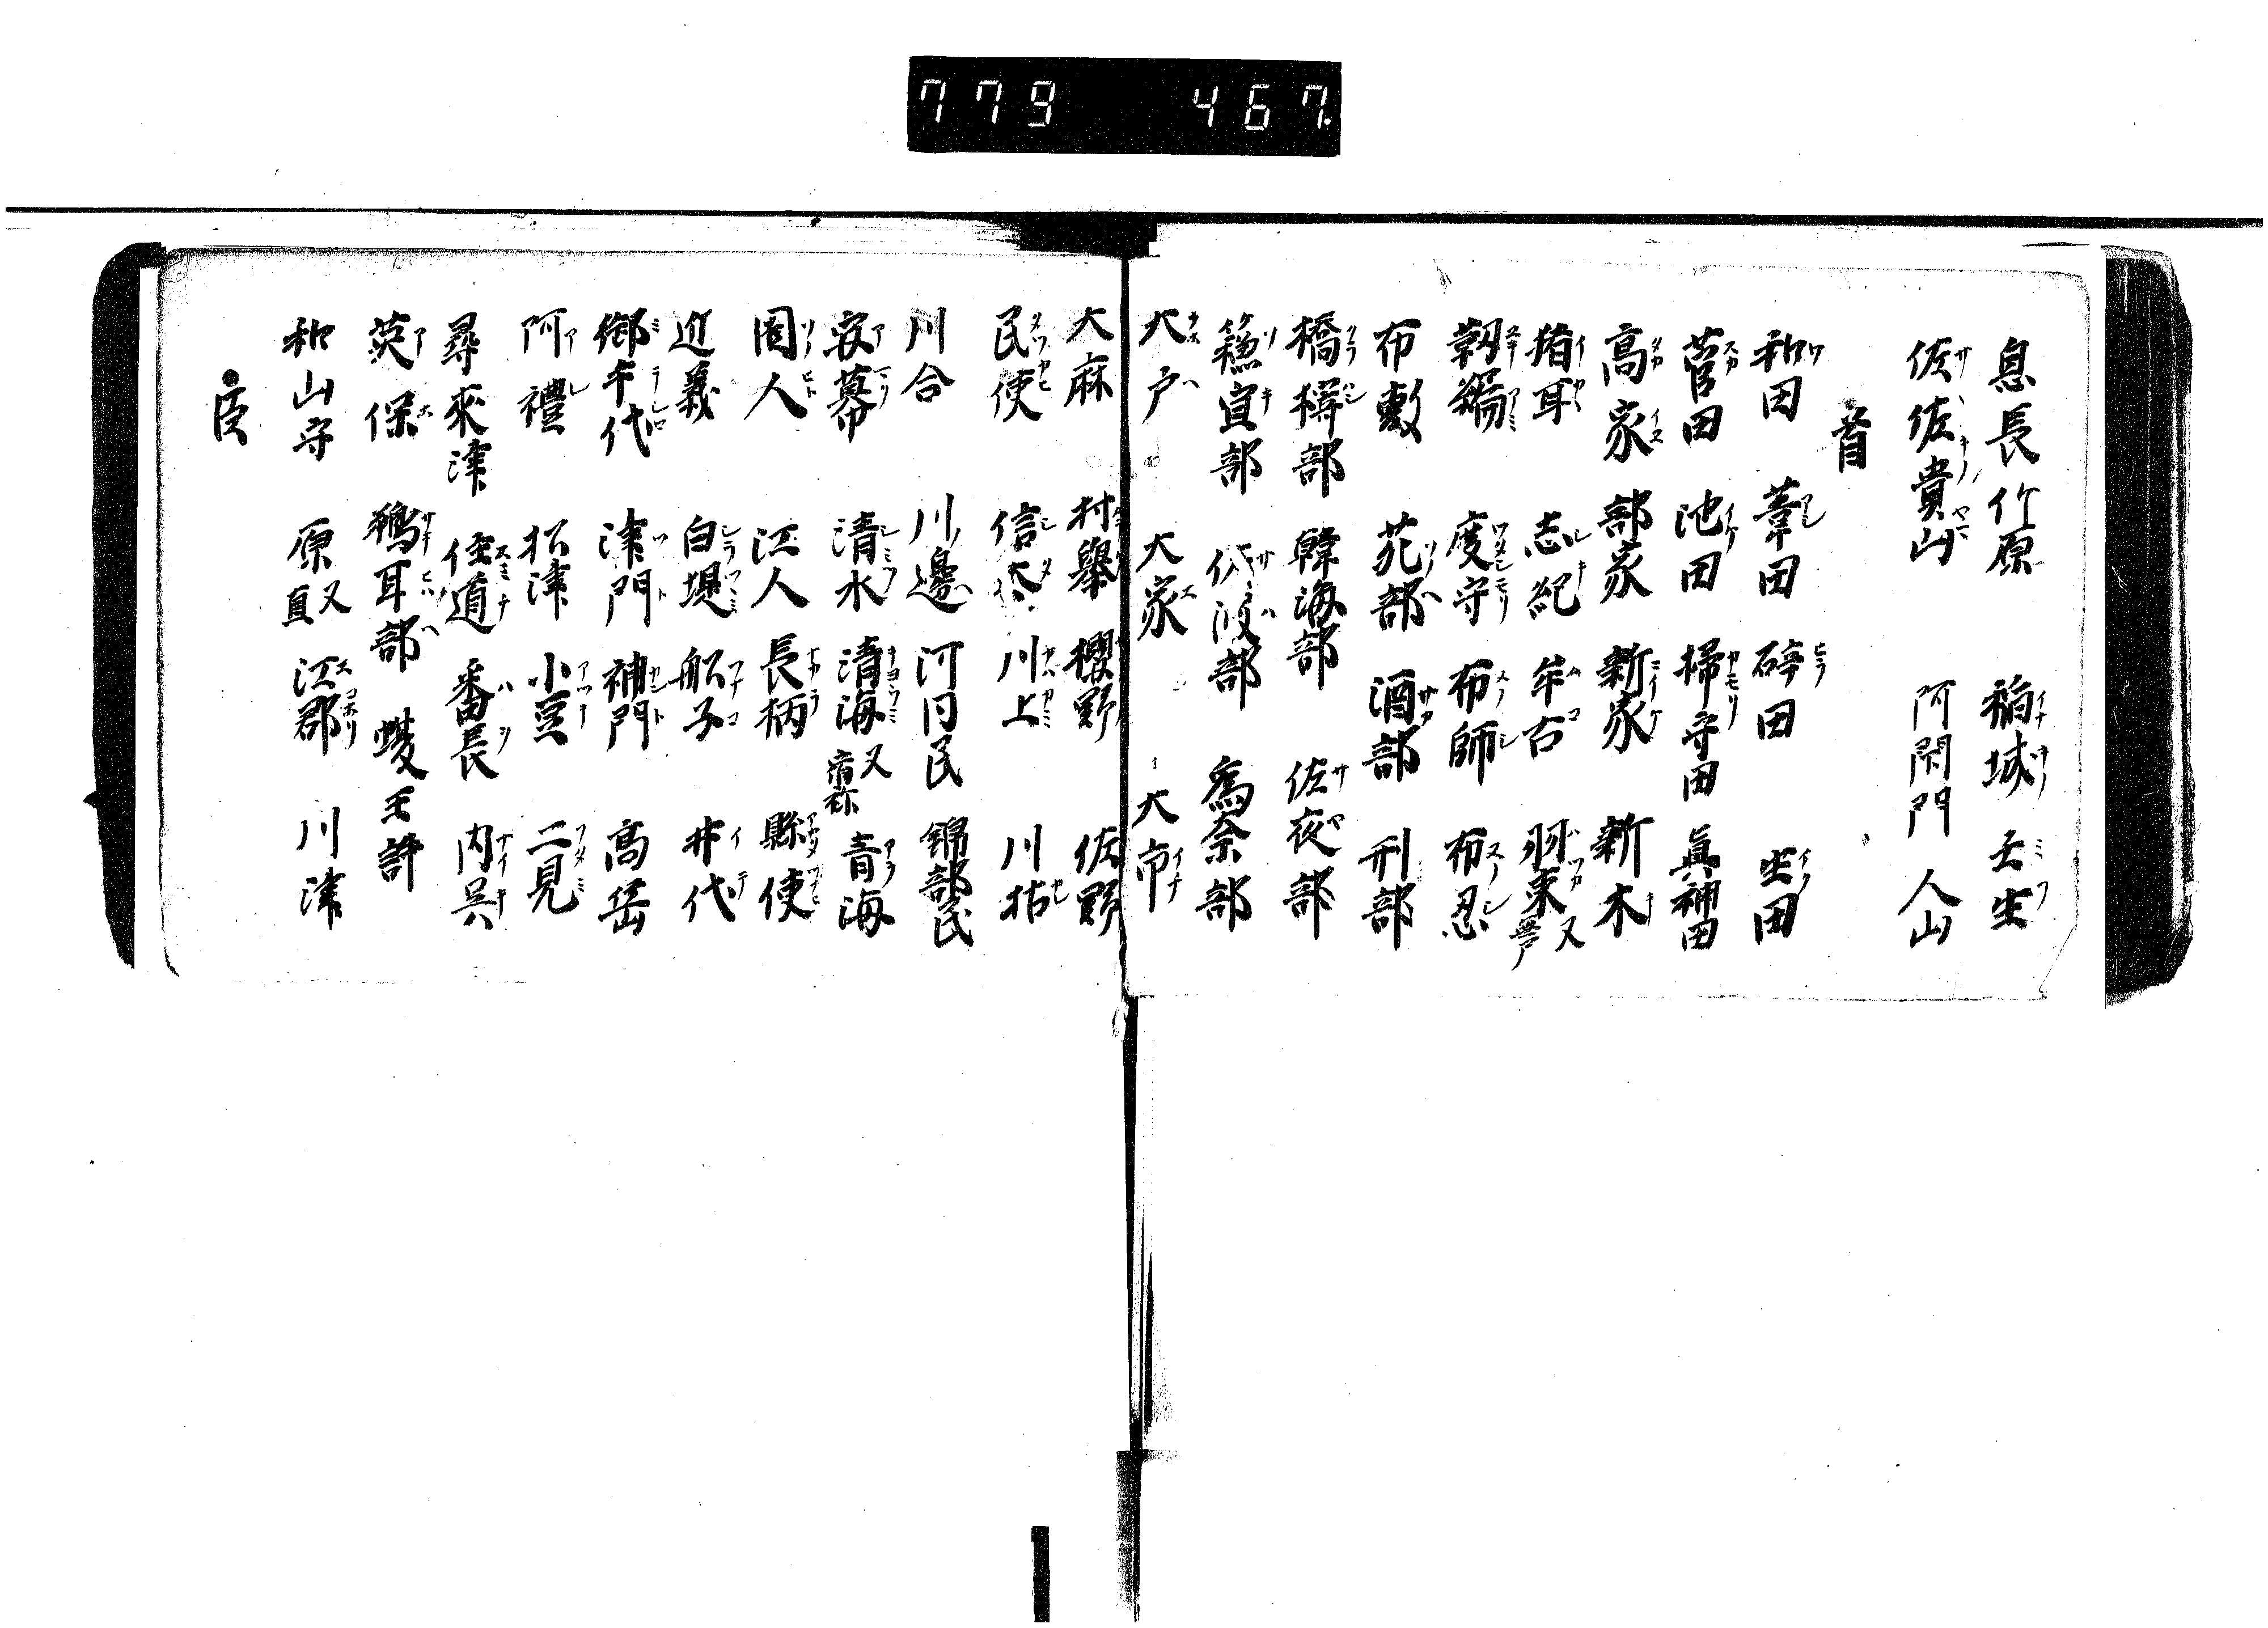 779 467.
息長竹原 稲城 壬生
佐佐貴山 阿閇門 人山
首
和田 葦田 碎田 生田
菅田 池田 掃守田 眞神田
高家 部家 新家 新木
猪耳 志紀 牟古 羽束 又無戸
靱編 度守 布師 布忍
布敷 苑部 酒部 刑部
橋樽部 韓海部 佐夜部
宜部 代渡部 爲奈部
大戸 大家 大市
大麻 村擧 櫻野 佐野
民使 信太 川上 川枯
川合 川邊 河内民 錦部民
安幕 清水 清海 又宿祢 青海
園人 江人 長柄 縣使
近義 白堤 船子 井代
御手代 津門 神門 高岳
阿禮 柘津 小豆 二見
尋來津 住道 番長 内呉
英保 鵜耳部 蝮王 許
和山守 原 又直 江郡 川津
臣